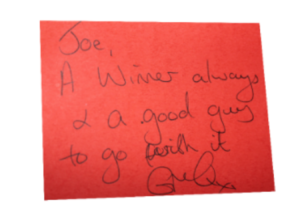 Joe,
A Winner always
& a good guy
to go with it